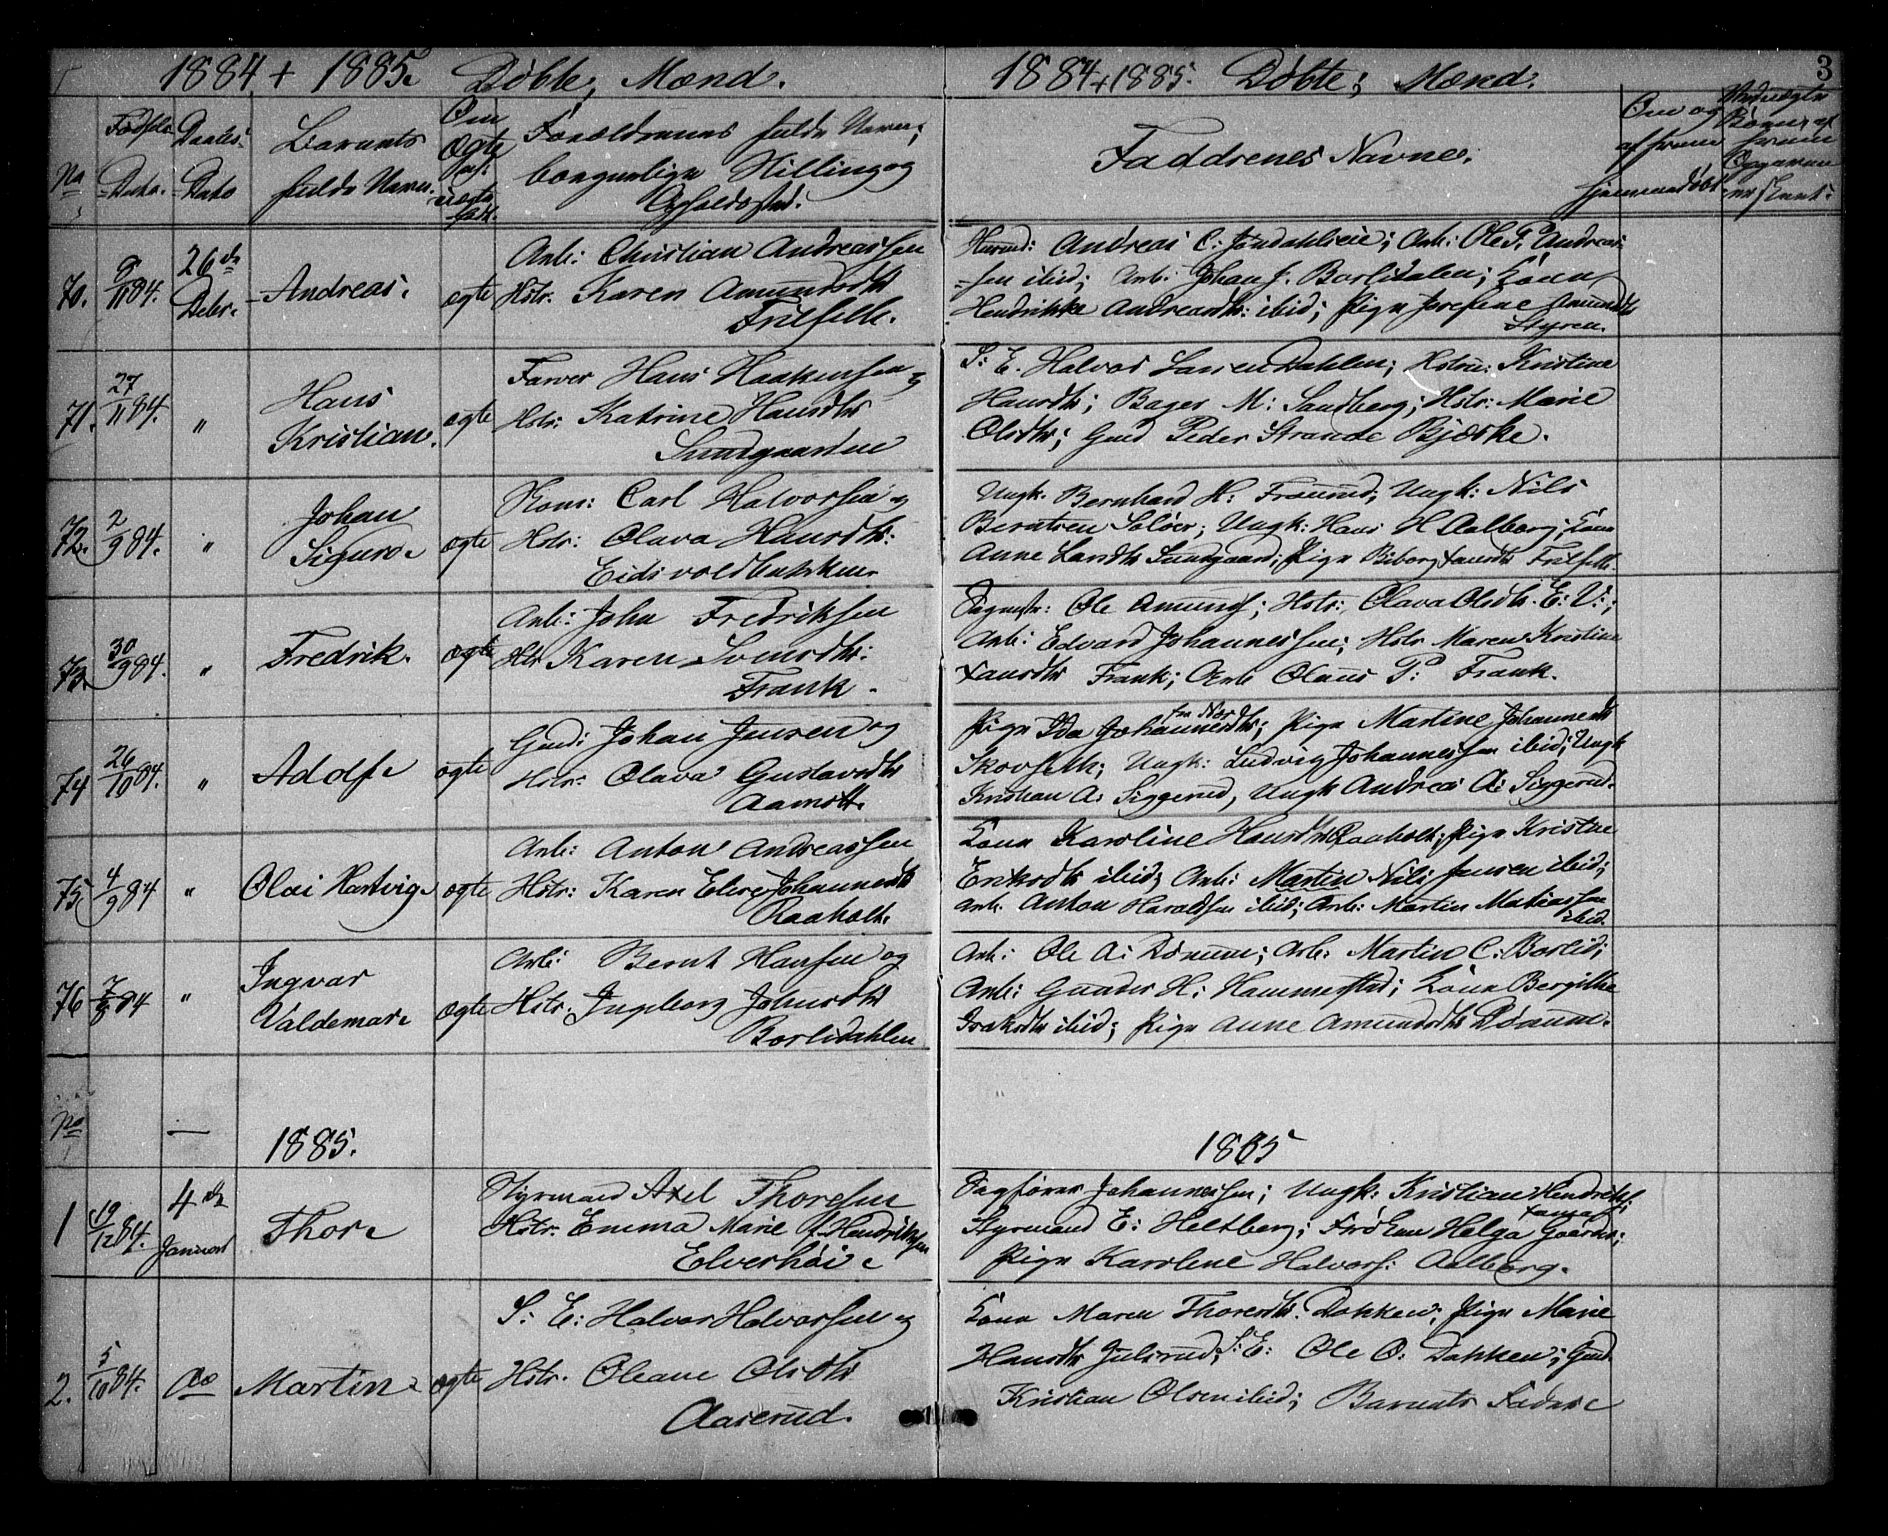 1884 + 1885. Døbte, Mænd.
1884 + 1885. Døbte; Mænd.
3
No
Fødsels-Dato.
Daabs-Dato
Barnets fulde Navn.
Om Ægte
Forældrenes fulde Navn,
borgerlige Stilling og
Opholdssted.
Faddrenes Navne.
Om og af hvem hjemmedøbt
70.
9/11 84.
26de Debr.
Andreas.
ægte
Arb: Christian Andreassen
Hstr. Karen Amundsdtr
Trilseth.
Andreas C. Jøndahlseie; Arb: Ole P. Andreas-
sen ibid; Arb: Johan J. Borlidalen; Kona
Hendrikke Andreasdtr: ibid; Pige Josefine Amundsdtr
Styren.
71.
27/11 84.
"
Hans
Kristian.
ægte
Farver Hans Haakensen og
Hstr: Katrine Hansdtr
Sundgaarden
S: E. Halvor Larsen Dahlen; Hstru: Kristine
Hansdtr; Bager M: Sandberg; Hstr: Marie
Olsdtr; Gmd Peder Strande Bjørke.
72.
2/9 84.
"
Johan
Sigurd.
ægte
Carl Halvorsen og
Hstr: Olava Hansdtr:
Eidsvoldbakken.
Ungk. Bernhard H: Ungk: Nils
Berntsen Soløer; Ungk: Hans H Aalborg; Kona
Anne Larsdtr Sundgaard; Pige Biborg Hansdtr Trilseth.
73.
30/9 84.
"
Fredrik.
ægte
Arb: John Fredriksen
Hstr Karen Svensdtr:
Frank.
Ole Amunds; Hstr: Olava Olsdtr. E: V:;
Arb: Edvard Johannessen; Hstr Maren Kristine
Hansdtr Frank; Arb Olaus P: Frank.
74
26/10 84.
"
Adolf.
ægte
Gmd: Johan Jensen og
Hstr: Olava Gustavsdtr
Aamodt.
Pige Ida Johannesdtr; Pige Martine Johannesdtr
Skovseth; Ungk: Ludvig Johannessen ibid; Ungk
Kristian A: Siggerud, Ungk Andreas A: Siggerud.
75.
4/9 84
"
Olai Hartvig.
ægte
Arb: Anton Andreassen
Hstr: Karen Elise Johannesdtr
Raaholt.
Kona Karoline Hansdtr Raaholt; Pige Kristine
Eriksdtr ibid; Arb: Martin Nils Jensen ibid;
Arb. Anton Haraldsen ibid; Arb: Martin Mathiassen
ibid.
76
7/8 84
"
Ingvar
Valdemar.
ægte
Arb: Bernt Hansen og
Hstr. Ingeborg Johnsdtr
Borlidahlen
Arb: Ole A: Dønnum; Arb: Martin C: Borlid;
Arb: Gunder H: Hammerstad; Kona Bergithe
Isaksdtr ibid; Pige Anne Amundsdtr Dønnum.
No
1885.
1885
1
19/12 84.
4de
Januar
Thor.
Styrmand Axel Thoresen
Hstr. Emma Marie f. Hendriksen
Elverhøi.
Sagfører Johannessen; Ungk: Kristian Hendriksen
Styrmand E: Heltberg; Frøken Helga Gaarder;
Pige Karoline Halvors: Aalborg.
2.
5/10 84.
do
Martin.
ægte
S: E: Halvor Halvorsen og
Hstr. Oleane Olsdtr
Aaserud.
Kona Maren Thoresdtr. Dokken; Pige Marie
Hansdtr Julsrud; S: E: Ole O: Dokken; Gmd.
Kristian Olsen ibid; Barnets Fader.